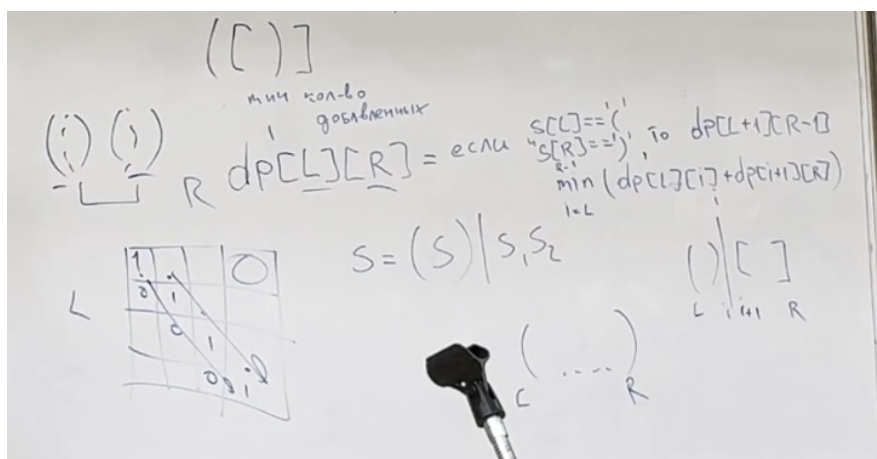 ([)]
мин кол-во
добавленных
dp[L][R] = если s[L]=='(' и s[R]==')', то dp[L+1][R-1]
R-1
min (dp[L][i]+dp[i+1][R])
i=L
R
L
1
0 1
0 1
0 1
S = (S) | S₁S₂
( ) | [ ]
L i i+1 R
( .... )
L R